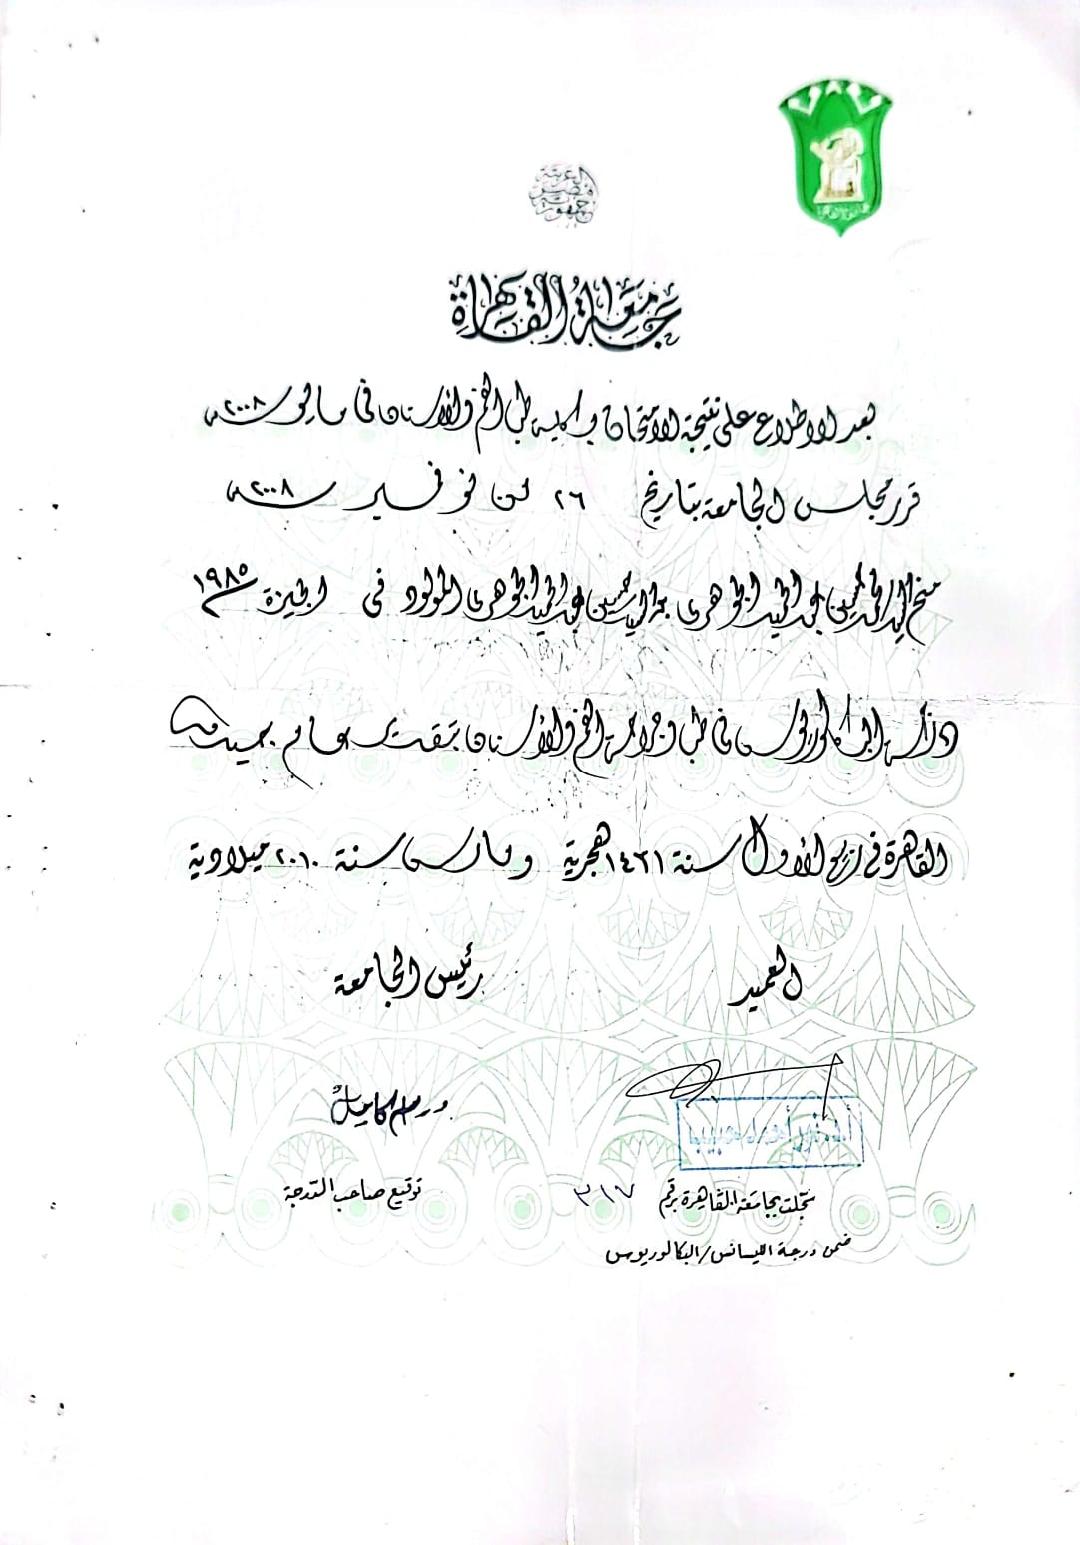 جمهورية مصر العربية
جامعة القاهرة
جامعة القاهرة
بعد الاطلاع على نتيجة الامتحان بكلية طب الفم والأسنان في مايو سنة ٢٠٠٨م
قرر مجلس الجامعة بتاريخ ٢٦ من نوفمبر سنة ٢٠٠٨م
منح السيد / حسين عبد الحميد الجوهرى السيد حسين عبد الحميد الجوهرى المولود فى الجيزة سنة ١٩٨٥م
درجة البكالوريوس في طب وجراحة الفم والأسنان بتقدير عام جيد
القاهرة في ربيع الأول سنة ١٤٣١ هجرية ومارس سنة ٢٠١٠ ميلادية
العميد
رئيس الجامعة
حسام كامل
سجلت بجامعة القاهرة برقم ٣١٧
توقيع صاحب الدرجة
ضمن درجة الليسانس/البكالوريوس